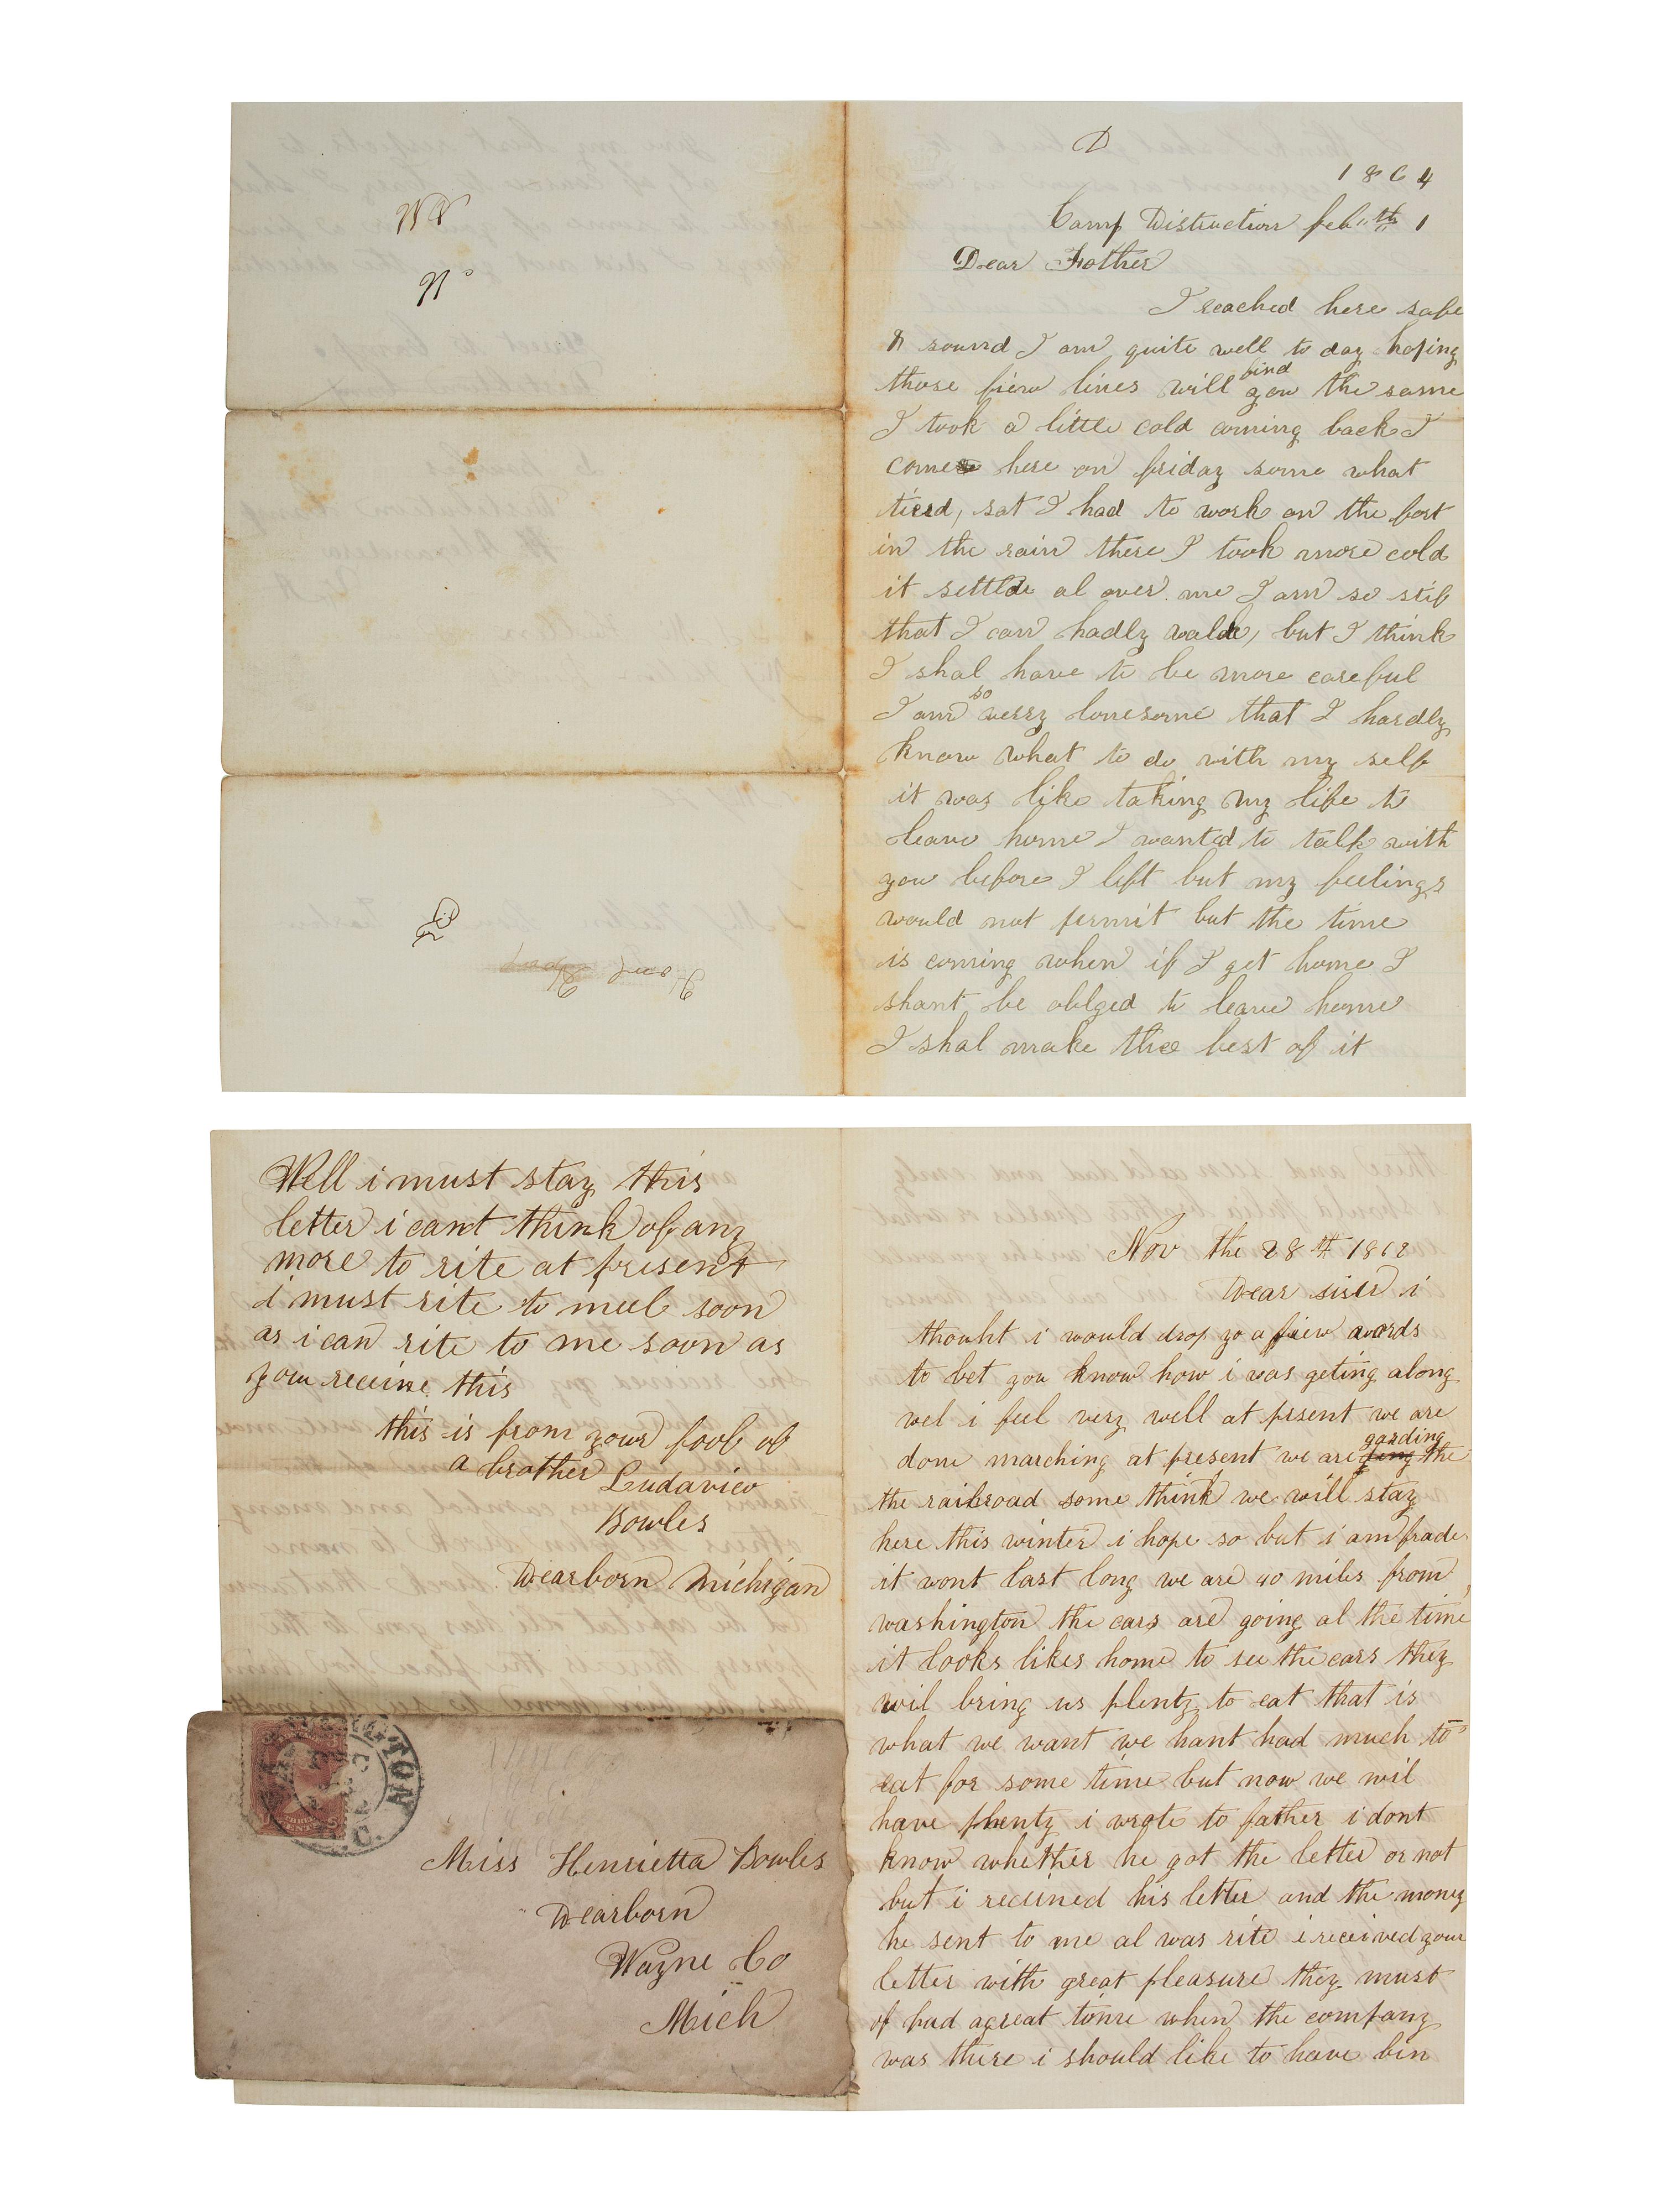 D
1864
Camp Distruction feb "th" 1
Dear Father
I reached here safe
& sound I am quite well to day hoping
those fiew lines will find you the same
I took a little cold coming back I
come here on friday some what
tierd, sat I had to work on the fort
in the rain there I took more cold
it settlde al over me I am so stif
that I can hadly walk, but I think
I shal have to be more careful
I am so verry lonesome that I hardly
know what to do with my self
it was like taking my life to
leave home I wanted to talk with
you before I left but my feelings
would not permit but the time
is coming when if I get home I
shant be oblged to leave home
I shal make the best of it
Well i must stay this
letter i cant think of any
more to rite at present
i must rite to meel soon
as i can rite to me soon as
you receive this
this is from your fool of
a brother Ludavico
Bowles
Dearborn Michigan
WASHINGTON
D.C.
THREE CENTS
Miss Henrietta Bowles
Dearborn
Wayne Co
Mich
Nov the 28th 1862
Dear sister i
thouht i would drop yo a fiew words
to let you know how i was geting along
wel i feel very well at prsent we are
done marching at present we are garding the
the railroad some think we will stay
here this winter i hope so but i am frade
it wont last long we are 40 miles from
washington the cars are going al the time
it looks likes home to see the cars they
wil bring us plenty to eat that is
what we want we hant had much to
eat for some time but now we wil
have plenty i wrote to father i dont
know whether he got the letter or not
but i recieved his letter and the money
he sent to me al was rite i received your
letter with great pleasure they must
of had a great time when the company
was there i should like to have bin